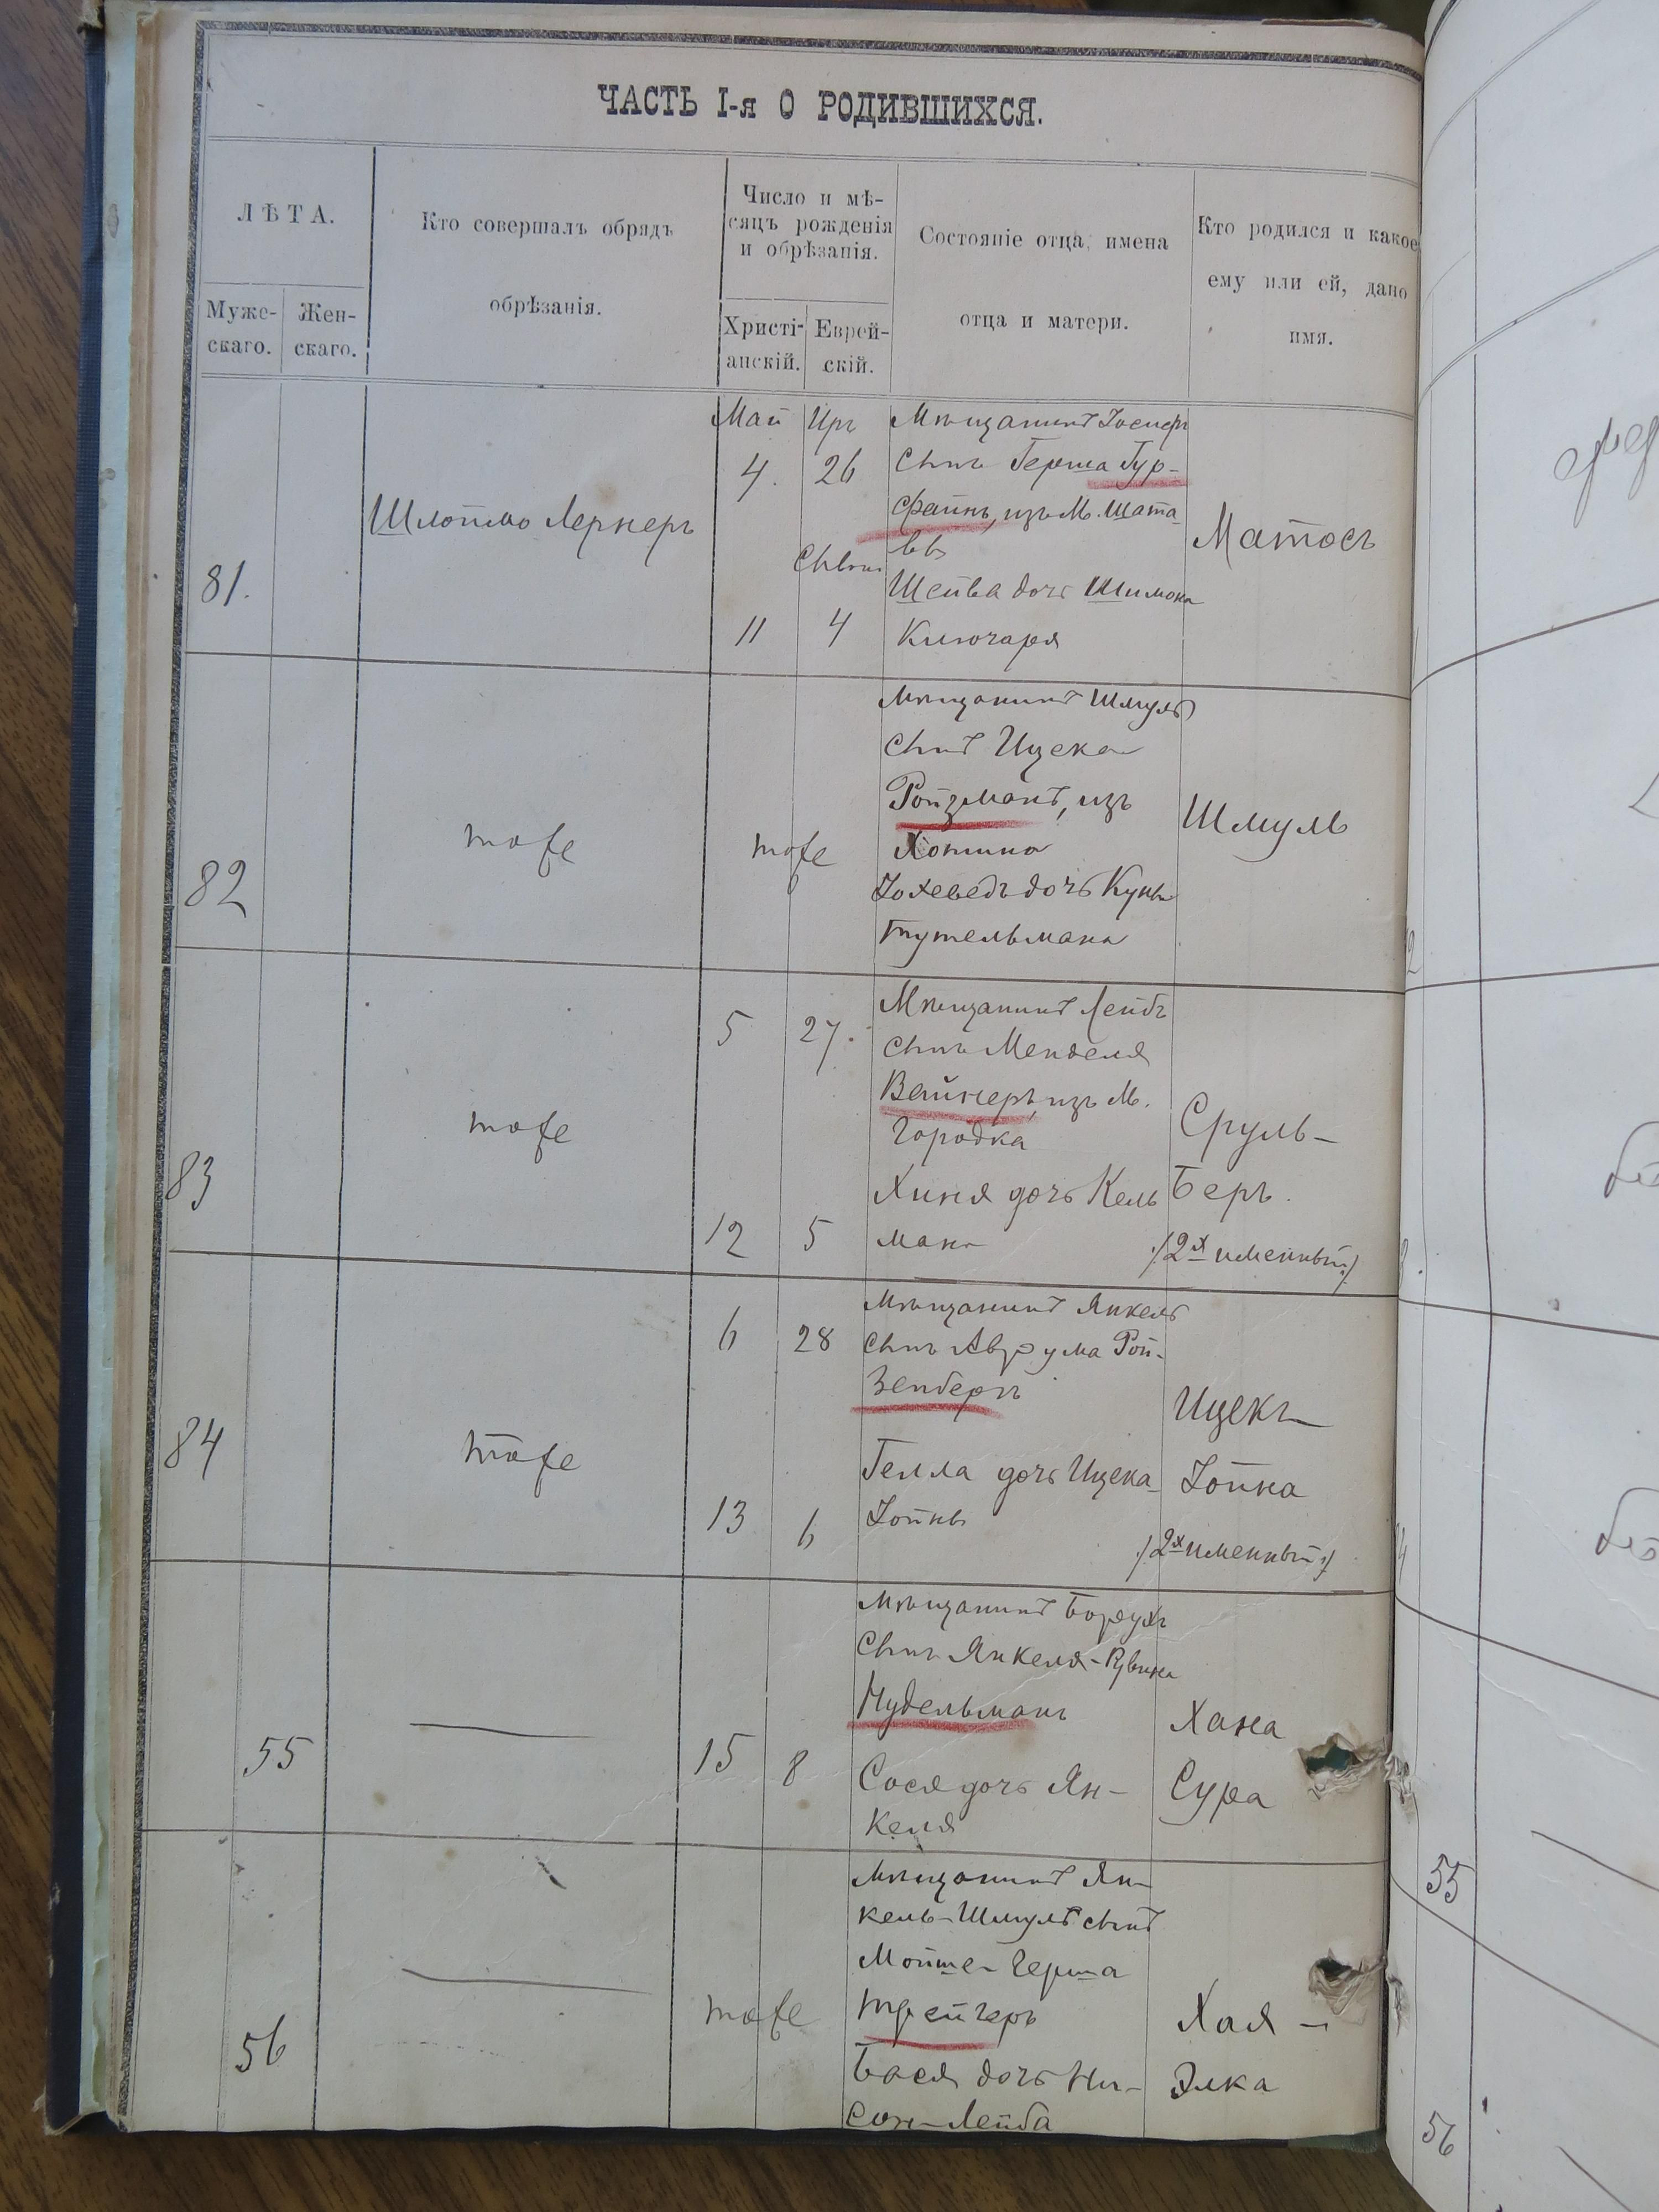 ЧАСТЬ I-я О РОДИВШИХСЯ.
ЛѢТА.
Муже-
скаго.
Жен-
скаго.
Кто совершалъ обрядъ
обрѣзанія.
Число и мѣ-
сяцъ рожденія
и обрѣзанія.
Христі-
анскій.
Еврей-
скій.
Состояніе отца, имена
отца и матери.
Кто родился и какое
ему или ей, дано
имя.
81.
Шлоймо Лернеръ
Май
4.
11
Иръ
26
Сивон
4
Мѣщанинъ Іосифъ
сынъ Герша Гур-
файнъ, изъ М. Шата-
вы
Шейва дочь Шимона
Ключаря
Матосъ
82
тоже
тоже
Мѣщанинъ Шмуль
сынъ Ицека
Ройзманъ, изъ
Хотина
Іохеведъ дочь Куны
Тутельмана
Шмуль
83
тоже
5
12
27.
5
Мѣщанинъ Лейбъ
сынъ Менделя
Вайнеръ, изъ М.
Городка
Хиня дочь Кель
мана
Сруль-
Беръ.
/2х именный/
84
тоже
6
13
28
6
Мѣщанинъ Янкель
сынъ Аврума Рой-
зенберъ
Гелла дочь Ицека
Іойны
Ицекъ-
Іойна
/2х именный/
55
15
8
Мѣщанинъ Борухъ
сынъ Янкеля-Рувина
Нудельманъ
Сося дочь Ян-
келя
Хана
Сура
56
тоже
Мѣщанинъ Ян-
кель-Шмуль сынъ
Мойше-Герша
Трейгеръ
Бася дочь Ни-
сон-Лейба
Хая -
Элка
55
56